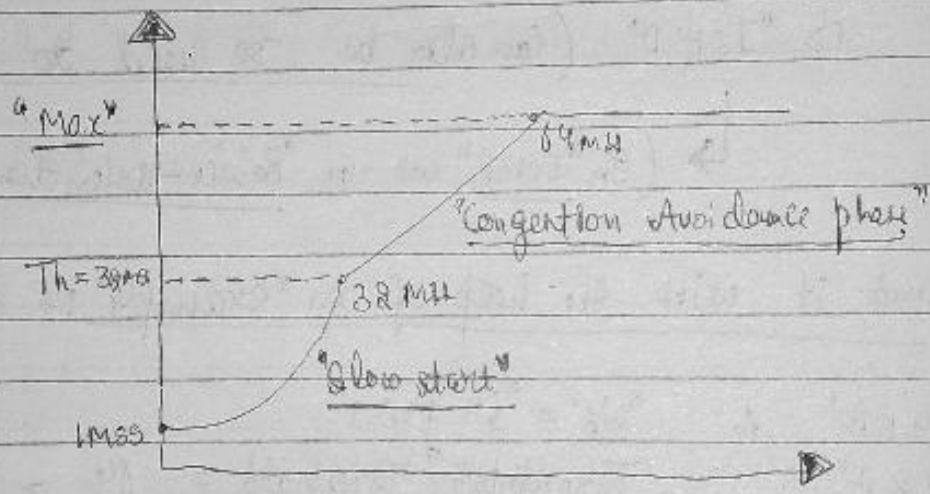 "Max"
64 MSS
"Congention Avoidance phase"
Th = 32 MSS
32 MSS
"Slow start"
1 MSS